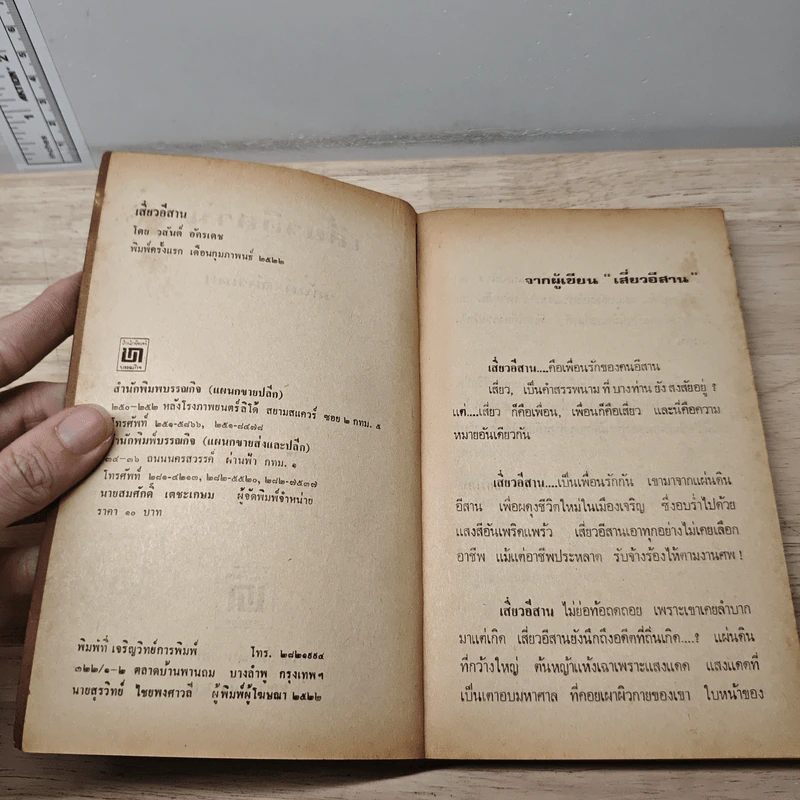 เสี่ยวอีสาน
โดย วสันต์ อัครเดช
พิมพ์ครั้งแรก เดือนกุมภาพนธ์ ๒๕๒๒
สำนักพิมพบรรณกิจ (แผนกขายปลีก)
๒๕๐-๒๕๒ หลังโรงภาพยนตร์ลิโด้ สยามสแควร์ ซอย ๒ กทม. ๕
โทรศัพท์ ๒๕๑-๕๘๖๖, ๒๕๑-๘๔๗๘
สำนักพิมพ์บรรณกิจ (แผนกขายส่งและปลีก)
๓๔-๓๖ ถนนนครสวรรค์ ผ่านฟ้า กทม. ๑
โทรศัพท์ ๒๘๑-๔๒๑๓, ๒๘๒-๕๕๒๐, ๒๘๒-๗๕๓๗
นายสมศักดิ์ เตชะเกษม ผู้จัดพิมพ์จำหน่าย
ราคา ๑๐ บาท
พิมพ์ที่ เจริญวิทย์การพิมพ์ โทร. ๒๘๒๑๑๑๔
๓๒๒/๑-๒ ตลาดบ้านพานถม บางลำพู กรุงเทพฯ
นายสุรวิทย์ ไชยพงศาวลี ผู้พิมพ์ผู้โฆษณา ๒๕๒๒
จากผู้เขียน "เสี่ยวอีสาน"
เสี่ยวอีสาน....คือเพื่อนรักของคนอีสาน
เสี่ยว, เป็นคำสรรพนาม ที่ บางท่าน ยัง สงสัยอยู่ ?
แต่....เสี่ยว ก็คือเพื่อน, เพื่อนก็คือเสี่ยว และนี่คือความ
หมายอันเดียวกัน
เสี่ยวอีสาน....เป็นเพื่อนรักกัน เขามาจากแผ่นดิน
อีสาน เพื่อผดุงชีวิตใหม่ในเมืองเจริญ ซึ่งอบร่ำไปด้วย
แสงสีอันเพริดแพร้ว เสี่ยวอีสานเอาทุกอย่างไม่เคยเลือก
อาชีพ แม้แต่อาชีพประหลาด รับจ้างร้องไห้ตามงานศพ !
เสี่ยวอีสาน ไม่ย่อท้อถดถอย เพราะเขาเคยลำบาก
มาแต่เกิด เสี่ยวอีสานยังนึกถึงอดีตที่ถิ่นเกิด....? แผ่นดิน
ที่กว้างใหญ่ ต้นหญ้าแห้งเฉาเพราะแสงแดด แสงแดดที่
เป็นเตาอบมหาศาล ที่คอยเผาผิวกายของเขา ใบหน้าของ